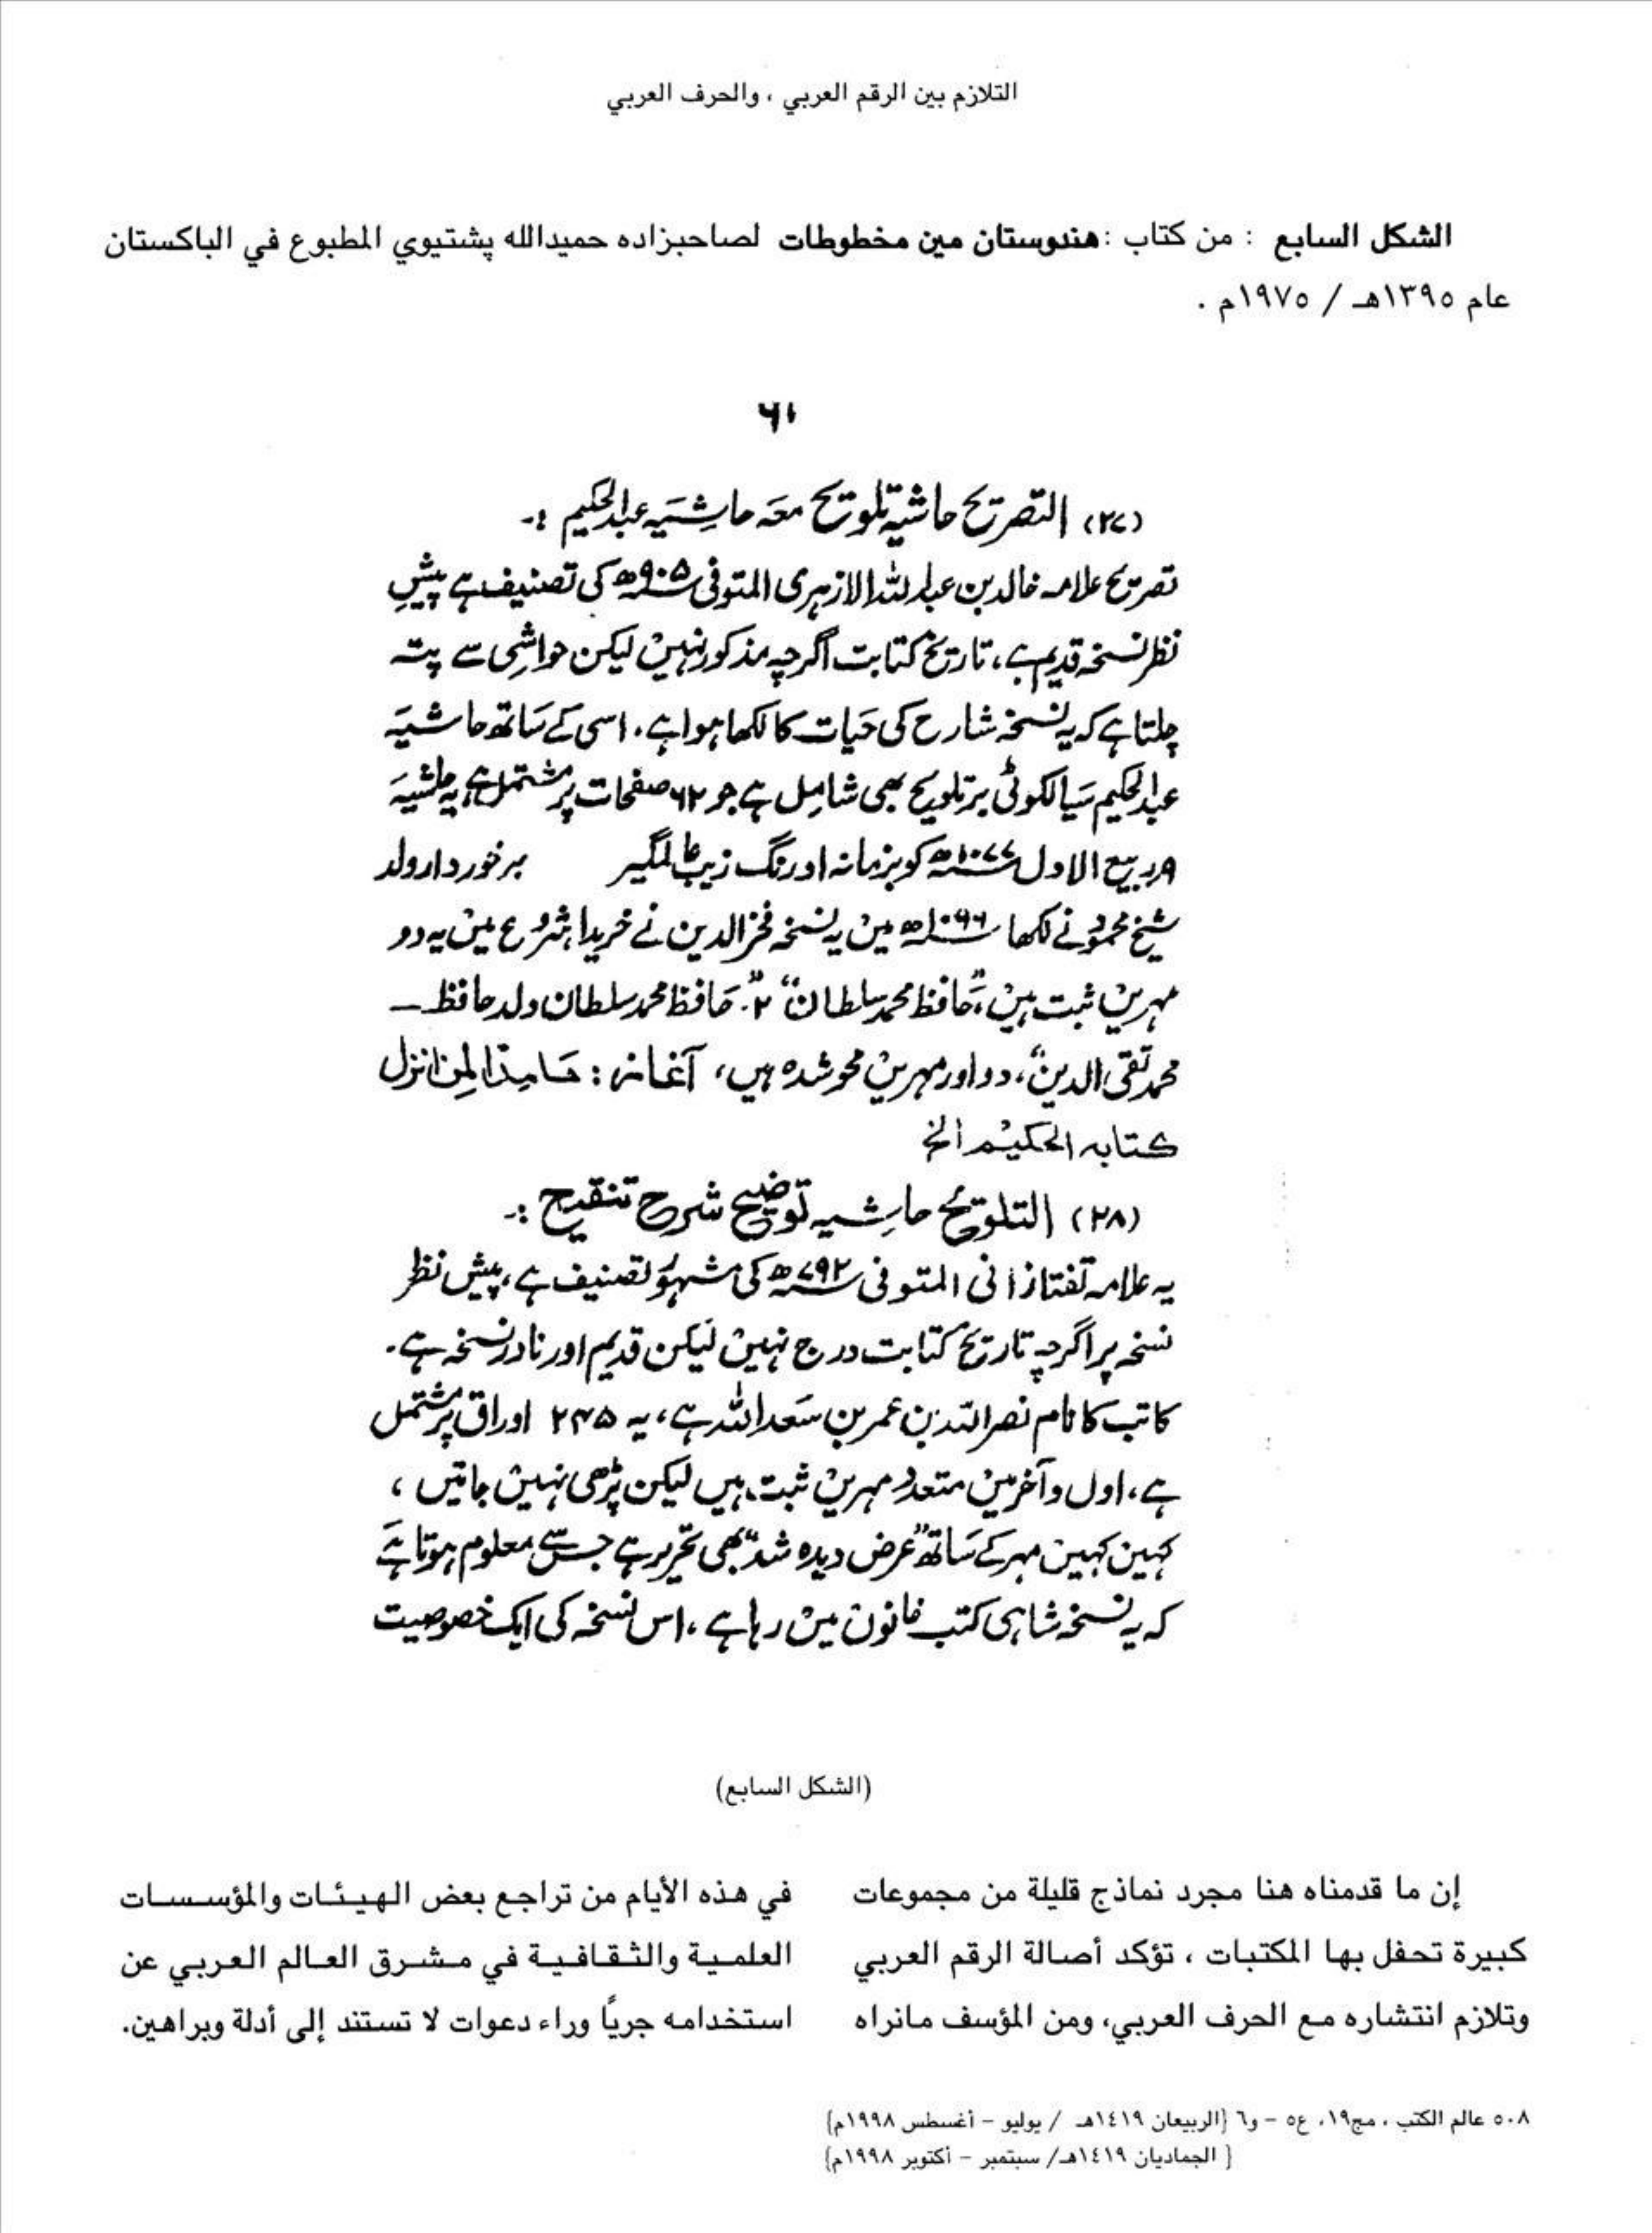 التلازم بين الرقم العربي ، والحرف العربي
الشكل السابع : من كتاب : هندوستان مين مخطوطات لصاحبزاده حميدالله پشتيوي المطبوع في الباكستان
عام ١٣٩٥هـ / ١٩٧٥م .
۶۱
(۲۷) التصریح حاشیہ تلویح معہ حاشیہ عبدالحکیم :-
تصریح علامہ خالد بن عبداللہ الازہری المتوفی ۹۰۵ھ کی تصنیف ہے پیشِ
نظر نسخہ قدیم ہے، تاریخ کتابت اگرچہ مذکور نہیں لیکن حواشی سے پتہ
چلتا ہے کہ یہ نسخہ شارح کی حیات کا لکھا ہوا ہے، اسی کے ساتھ حاشیہ
عبدالحکیم سیالکوٹی بر تلویح بھی شامل ہے جو ۶۲ صفحات پر مشتمل ہے، یہ حاشیہ
۹ ربیع الاول ۱۰۷۷ھ کو بزمانہ اورنگ زیب عالمگیر برخوردار ولد
شیخ محمود نے لکھا ۱۰۹۶ھ میں یہ نسخہ فخرالدین نے خریدا، شروع میں یہ دو
مہریں ثبت ہیں، "حافظ محمد سلطان" ۲. "حافظ محمد سلطان ولد حافظ —
محمد تقی الدین"، دو اور مہریں محو شدہ ہیں، آغاز : حامدًا لمن انزل
کتابہ الحکیم الخ
(۲۸) التلویح حاشیہ توضیح شرح تنقیح :-
یہ علامہ تفتازانی المتوفی ۷۹۲ھ کی مشہور تصنیف ہے، پیش نظر
نسخہ پر اگرچہ تاریخ کتابت درج نہیں لیکن قدیم اور نادر نسخہ ہے۔
کاتب کا نام نصر اللہ بن عمر بن سعد اللہ ہے، یہ ۲۳۵ اوراق پر مشتمل
ہے، اول و آخر میں متعدد مہریں ثبت ہیں لیکن پڑھی نہیں جاتیں ،
کہیں کہیں مہر کے ساتھ "عرض دیدہ شد" بھی تحریر ہے جس سے معلوم ہوتا ہے
کہ یہ نسخہ شاہی کتب خانوں میں رہا ہے ، اس نسخہ کی ایک خصوصیت
(الشكل السابع)
إن ما قدمناه هنا مجرد نماذج قليلة من مجموعات
كبيرة تحفل بها المكتبات ، تؤكد أصالة الرقم العربي
وتلازم انتشاره مع الحرف العربي، ومن المؤسف مانراه
في هذه الأيام من تراجع بعض الهيئات والمؤسسات
العلمية والثقافية في مشرق العالم العربي عن
استخدامه جريًا وراء دعوات لا تستند إلى أدلة وبراهين.
٥٠٨ عالم الكتب ، مج١٩، ع٥ - و٦ {الربيعان ١٤١٩هـ / يوليو - أغسطس ١٩٩٨م}
{ الجماديان ١٤١٩هـ/ سبتمبر - أكتوبر ١٩٩٨م}